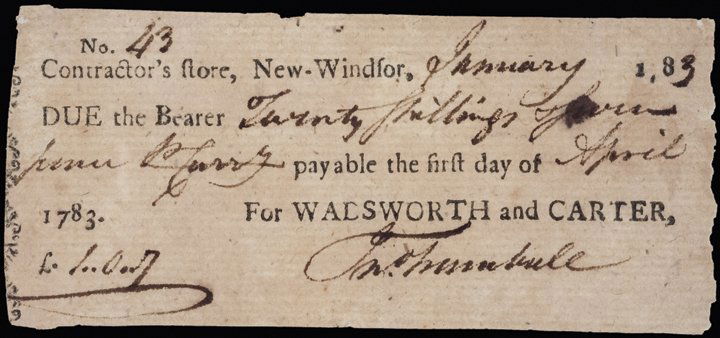 No. 43
Contractor's ſtore, New-Windſor, January 1, 83
DUE the Bearer Twenty Shillings & Seven
pence Curry payable the firſt day of April
1783. For WADSWORTH and CARTER,
£ 1..0..7 Jno. Trumbull